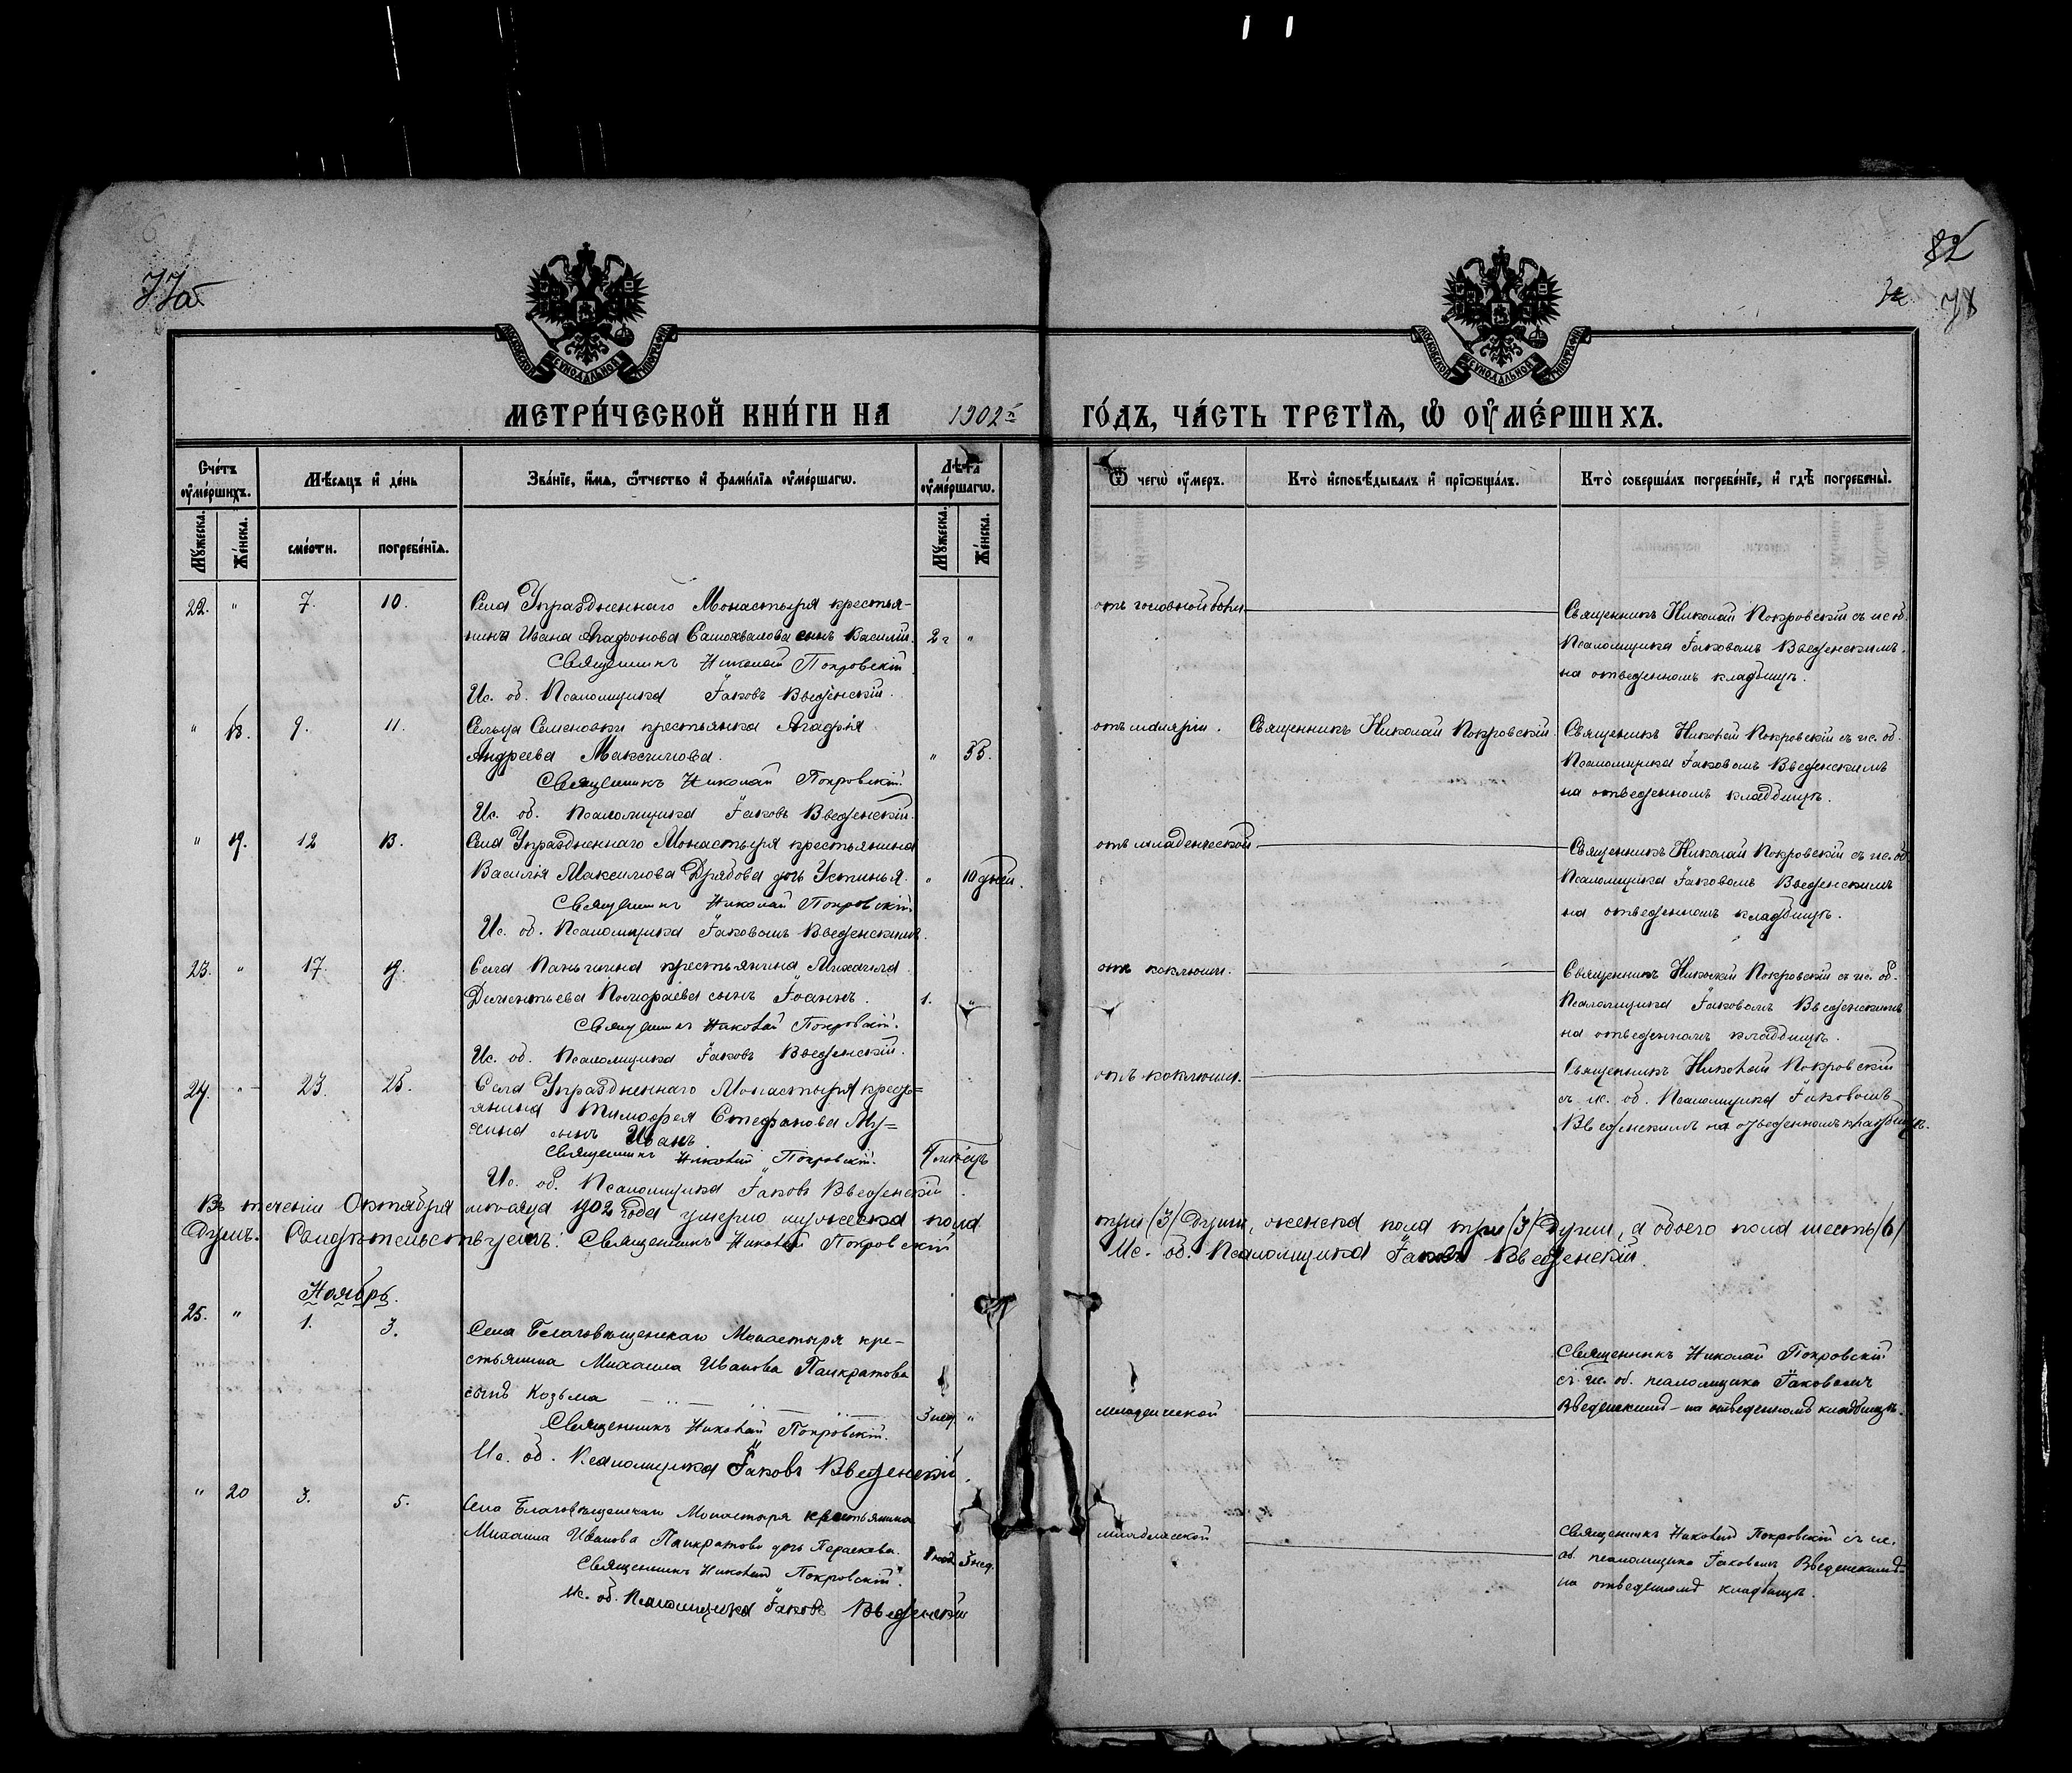 77 об
82
78
МОСКОВСКОЙ СѴНОДАЛЬНОЙ ТИПОГРАФІИ
МОСКОВСКОЙ СѴНОДАЛЬНОЙ ТИПОГРАФІИ
МЕТРИ́ЧЕСКОЙ КНИ́ГИ НА 1902й ГО́ДЪ, ЧА́СТЬ ТРЕТІѦ, Ѽ ОУ҆МЕ́РШИХЪ.
Сче́тъ оу҆ме́ршихъ.
Мѣ́сяцъ и҆ де́нь
Зва́нїе, и҆́мя, ѻ҆́тчество и҆ фами́лїя оу҆ме́ршагѡ.
Лѣ́та оу҆ме́ршагѡ.
Ѿ чегѡ̀ оу҆́меръ.
Кто̀ и҆сповѣ́дывалъ и҆ прїѡбща́лъ.
Кто̀ соверша́лъ погребе́нїе, и҆ гдѣ̀ погребены̀.
Мꙋ́жеска.
Же́нска.
сме́рти.
погребе́нїя.
Мꙋ́жеска.
Же́нска.
22. " 7. 10. Села Упраздненнаго Монастыря крестья-
нина Ивана Агафонова Самохвалова сынъ Василій. 2 г "
Священникъ Николай Покровскій
Ис. об. Псаломщика Іаковъ Введенскій.
отъ головной боли
Священникъ Николай Покровскій съ ис об.
Псаломщика Іаковомъ Введенскимъ.
на отведенномъ кладбищѣ.
" 18. 9. 11. Сельца Семеновки крестьянка Агафія
Андреева Максимова. " 55.
Священникъ Николай Покровскій.
Ис. об. Псаломщика Іаковъ Введенскій.
отъ маляріи.
Священникъ Николай Покровскій.
Священникъ Николай Покровскій съ ис. об.
Псаломщика Іаковомъ Введенскимъ
на отведенномъ кладбищѣ.
" 19. 12 13. Села Упраздненнаго Монастыря крестьянина
Василія Максимова Дрябова дочь Устинья. " 10 дней.
Священникъ Николай Покровскій.
Ис. об. Псаломщика Іаковомъ Введенскимъ.
отъ младенческой
Священникъ Николай Покровскій съ ис. об
Псаломщика Іаковомъ Введенскимъ
на отведенномъ кладбищѣ.
23. " 17. 19. Села крестьянина Михаила
Дементьева сынъ Іоаннъ. 1. "
Священникъ Николай Покровскій.
Ис. об. Псаломщика Іаковъ Введенскій.
отъ коклюши.
Священникъ Николай Покровскій съ ис. об.
Псаломщика Іаковомъ Введенскимъ
на отведенномъ кладбищѣ.
24. " 23. 25. Села Упраздненнаго Монастыря кресть=
янина Тимофея Стефанова Му=
хина сынъ Иванъ.
Священникъ Николай Покровскій.
Ис. об. Псаломщика Іаковъ Введенскій.
отъ коклюши.
Священникъ Николай Покровскій
съ ис. об. Псаломщика Іаковомъ
Введенскимъ на отведенномъ кладбищѣ.
Въ теченіи Октября мѣсяца 1902 года умерло мужеска пола три /3/ души, женска пола три /3/ души, а обоего пола шесть /6/
душъ. Свидѣтельствуемъ: Священникъ Николай Покровскій Ис. об. Псаломщика Іаковъ Введенскій.
Ноябрь.
25. " 1. 3. Села Благовѣщенскаго Монастыря кре-
стьянина Михаила Иванова Панкратова
сынъ Козьма 3 нед. "
Священникъ Николай Покровскій.
Ис. об. Псаломщика Іаковъ Введенскій.
младенческой
Священникъ Николай Покровскій
съ ис. об. псаломщика Іаковомъ
Введенскимъ - на отведенномъ кладбищѣ.
" 20 3. 5. Села Благовѣщенскаго Монастыря крестьянина
Михаила Иванова Панкратова дочь Параскева. 3 нед.
Священникъ Николай Покровскій.
Ис. об. Псаломщика Іаковъ Введенскій
младенческой
Священникъ Николай Покровскій съ ис.
об. псаломщика Іаковомъ Введенскимъ
на отведенномъ кладбищѣ.